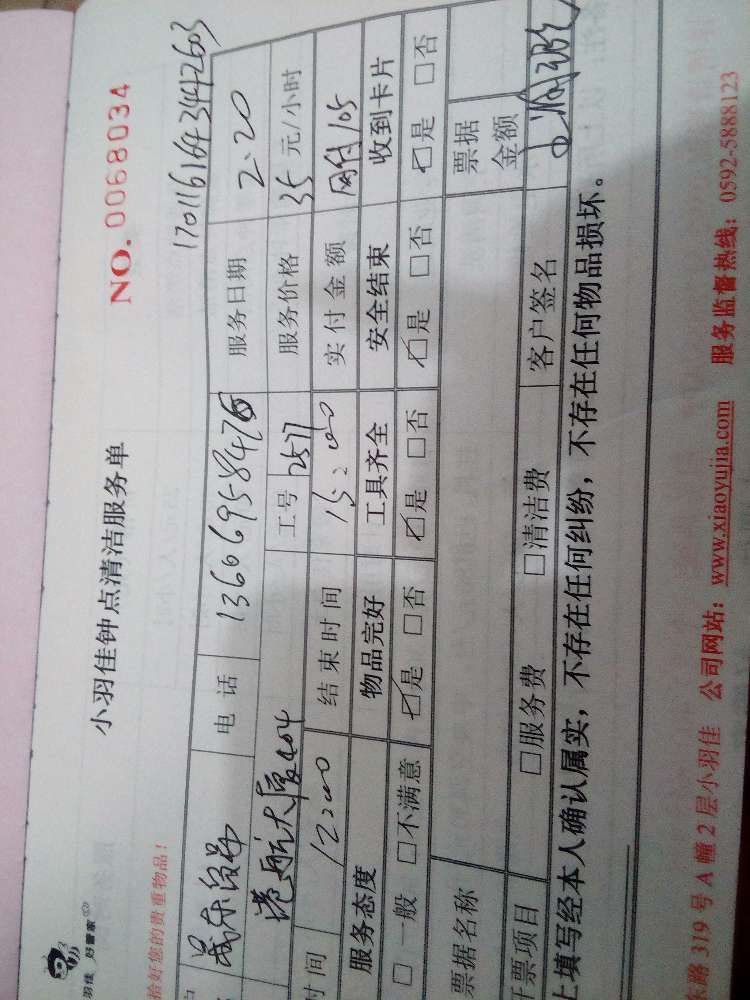 羽佳 好管家
小羽佳钟点清洁服务单
NO. 0068034
拾好您的贵重物品!
17011616434442603
户 电话 13606958476 服务日期 2.20
港航大厦404 工号 2577 服务价格 35元/小时
时间 12:00 结束时间 15:00 实付金额 网付105
服务态度 物品完好 工具齐全 安全结束 收到卡片
□一般 □不满意 ☑是 □否 ☑是 □否 ☑是 □否 ☑是 □否
票据名称 票据金额
开票项目 □服务费 □清洁费 客户签名
上填写经本人确认属实,不存在任何纠纷,不存在任何物品损坏。
路 319 号 A 幢 2 层小羽佳 公司网站:www.xiaoyujia.com 服务监督热线:0592-5888123